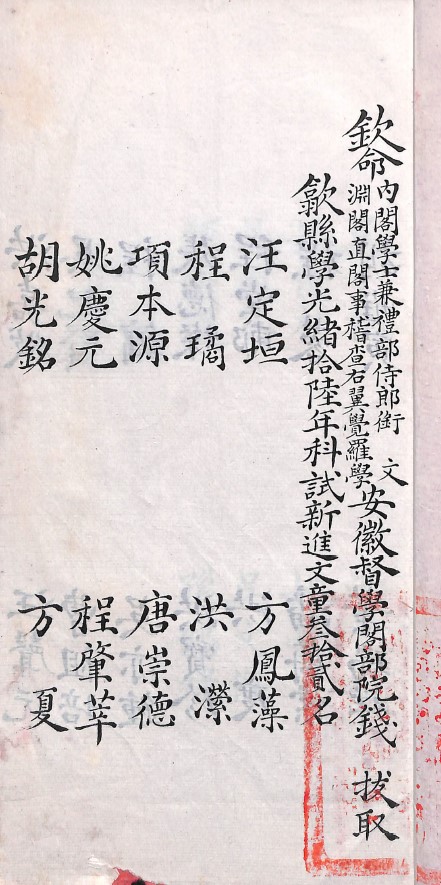 欽命內閣學士兼禮部侍郎銜文
淵閣直閣事稽查右翼覺羅學安徽督學閣部院錢 拔取
歙縣學光緒拾陸年科試新進文童叄拾貳名
汪定垣 方鳳藻
程璚 洪濴
項本源 唐崇德
姚慶元 程肇莘
胡光銘 方夏